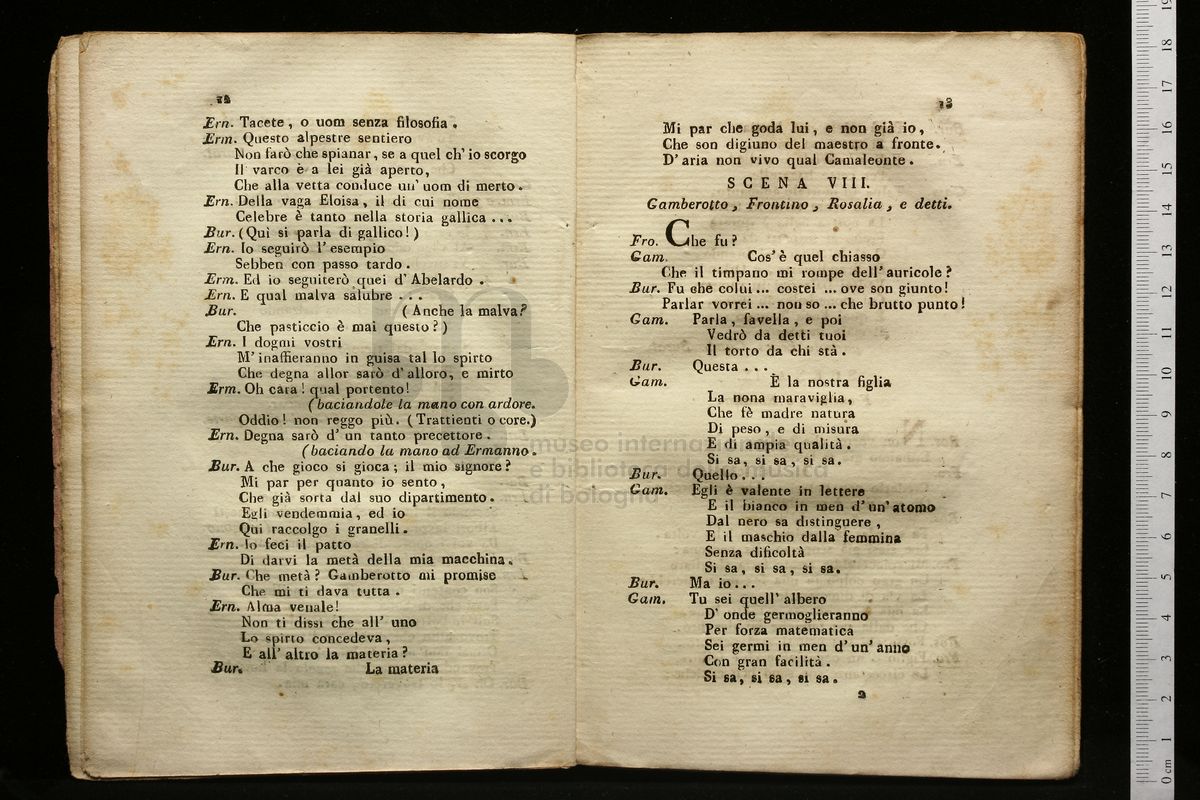 12
Ern. Tacete, o uom senza filosofia.
Erm. Questo alpestre sentiero
Non farò che spianar, se a quel ch' io scorgo
Il varco è a lei già aperto,
Che alla vetta conduce un' uom di merto.
Ern. Della vaga Eloisa, il di cui nome
Celebre è tanto nella storia gallica ...
Bur. (Quì si parla di gallico!)
Ern. Io seguirò l' esempio
Sebben con passo tardo.
Erm. Ed io seguiterò quei d' Abelardo.
Ern. E qual malva salubre ...
Bur. (Anche la malva?
Che pasticcio è mai questo?)
Ern. I dogmi vostri
M' inaffieranno in guisa tal lo spirto
Che degna allor sarò d' alloro, e mirto
Erm. Oh cara! qual portento!
(baciandole la mano con ardore.
Oddio! non reggo più. (Trattienti o core.)
Ern. Degna sarò d' un tanto precettore.
(baciando la mano ad Ermanno.
Bur. A che gioco si gioca; il mio signore?
Mi par per quanto io sento,
Che già sorta dal suo dipartimento.
Egli vendemmia, ed io
Qui raccolgo i granelli.
Ern. Io feci il patto
Di darvi la metà della mia macchina.
Bur. Che metà? Gamberotto mi promise
Che mi ti dava tutta.
Ern. Alma venale!
Non ti dissi che all' uno
Lo spirto concedeva,
E all' altro la materia?
Bur. La materia
13
Mi par che goda lui, e non già io,
Che son digiuno del maestro a fronte.
D' aria non vivo qual Camaleonte.
SCENA VIII.
Gamberotto, Frontino, Rosalia, e detti.
Fro. Che fu?
Gam. Cos' è quel chiasso
Che il timpano mi rompe dell' auricole?
Bur. Fu che colui ... costei ... ove son giunto!
Parlar vorrei ... non so ... che brutto punto!
Gam. Parla, favella, e poi
Vedrò da detti tuoi
Il torto da chi stà.
Bur. Questa ...
Gam. È la nostra figlia
La nona maraviglia,
Che fè madre natura
Di peso, e di misura
E di ampia qualità.
Si sa, si sa, si sa.
Bur. Quello ...
Gam. Egli è valente in lettere
E il bianco in men d' un' atomo
Dal nero sa distinguere,
E il maschio dalla femmina
Senza dificoltà
Si sa, si sa, si sa.
Bur. Ma io ...
Gam. Tu sei quell' albero
D' onde germoglieranno
Per forza matematica
Sei germi in men d' un' anno
Con gran facilità.
Si sa, si sa, si sa.
2
museo internazionale
e biblioteca della musica
di bologna